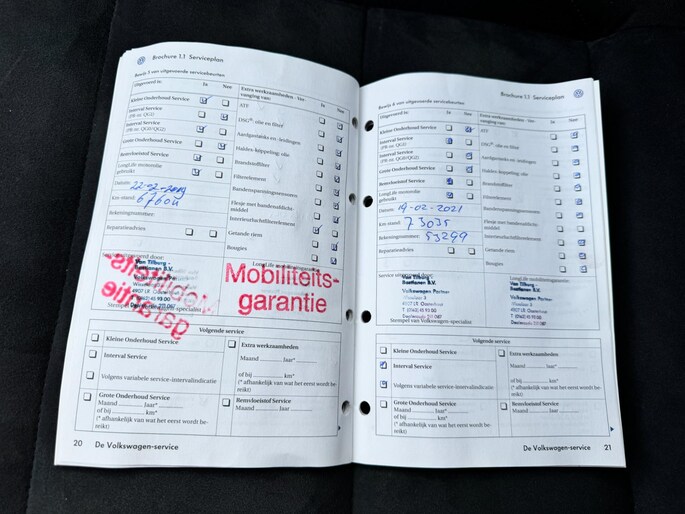 Brochure 1.1 Serviceplan
Bewijs 5 van uitgevoerde servicebeurten
Uitgevoerd te:
Ja
Nee
Extra werkzaamheden - Vervanging van:
Ja
Nee
Kleine Onderhoud Service
Interval Service
(PR-nr. QG1)
Interval Service
(PR-nr. QG0/QG2)
Grote Onderhoud Service
Remvloeistof Service
LongLife motorolie
gebruikt
Datum: 22-02-2019
Km-stand:
Rekeningnummer:
Reparatieadvies
ATF
DSG®-olie en filter
Aardgastanks en -leidingen
Haldex-koppeling; olie
Brandstoffilter
Filterelement
Bandenspanningssensoren
Flesje met bandendichtmiddel
Interieurluchtfilterelement
Getande riem
Bougies
Service uitgevoerd door:
LongLife mobiliteitsgarantie:
Van Tilburg -
Bastianen B.V.
4907 LR Oosterhout
T (0162) 45 93 00
Dealercode 211 067
Stempel van Volkswagen-specialist
Mobiliteits-
garantie
Volgende service
Kleine Onderhoud Service
Interval Service
Volgens variabele service-intervalindicatie
Grote Onderhoud Service
Maand ........ Jaar*........
of bij ........ km*
(* afhankelijk van wat het eerst wordt bereikt)
Extra werkzaamheden
Maand ........ Jaar*........
of bij ........ km*
(* afhankelijk van wat het eerst wordt bereikt)
Remvloeistof Service
Maand ........ Jaar ........
20 De Volkswagen-service
Brochure 1.1 Serviceplan
Bewijs 6 van uitgevoerde servicebeurten
Uitgevoerd te:
Ja
Nee
Extra werkzaamheden - Vervanging van:
Ja
Nee
Kleine Onderhoud Service
Interval Service
(PR-nr. QG1)
Interval Service
(PR-nr. QG0/QG2)
Grote Onderhoud Service
Remvloeistof Service
LongLife motorolie
gebruikt
Datum: 19-02-2021
Km-stand: 73035
Rekeningnummer: 53299
Reparatieadvies
ATF
DSG®-olie en filter
Aardgastanks en -leidingen
Haldex-koppeling; olie
Brandstoffilter
Filterelement
Bandenspanningssensoren
Flesje met bandendichtmiddel
Interieurluchtfilterelement
Getande riem
Bougies
Service uitgevoerd door:
LongLife mobiliteitsgarantie:
Van Tilburg -
Bastianen B.V.
Volkswagen Partner
4907 LR Oosterhout
T (0162) 45 93 00
Dealercode 211 067
Stempel van Volkswagen-specialist
Volgende service
Kleine Onderhoud Service
Interval Service
Volgens variabele service-intervalindicatie
Grote Onderhoud Service
Maand ........ Jaar*........
of bij ........ km*
(* afhankelijk van wat het eerst wordt bereikt)
Extra werkzaamheden
Maand ........ Jaar*........
of bij ........ km*
(* afhankelijk van wat het eerst wordt bereikt)
Remvloeistof Service
Maand ........ Jaar ........
De Volkswagen-service 21